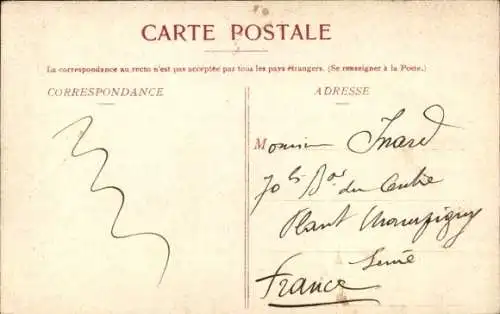 CARTE POSTALE
La correspondance au recto n'est pas acceptée par tous les pays étrangers. (Se renseigner à la Poste.)
CORRESPONDANCE
ADRESSE
Monsieur Inard
70 Bor du Centre
Plant Champigny
Seine
France